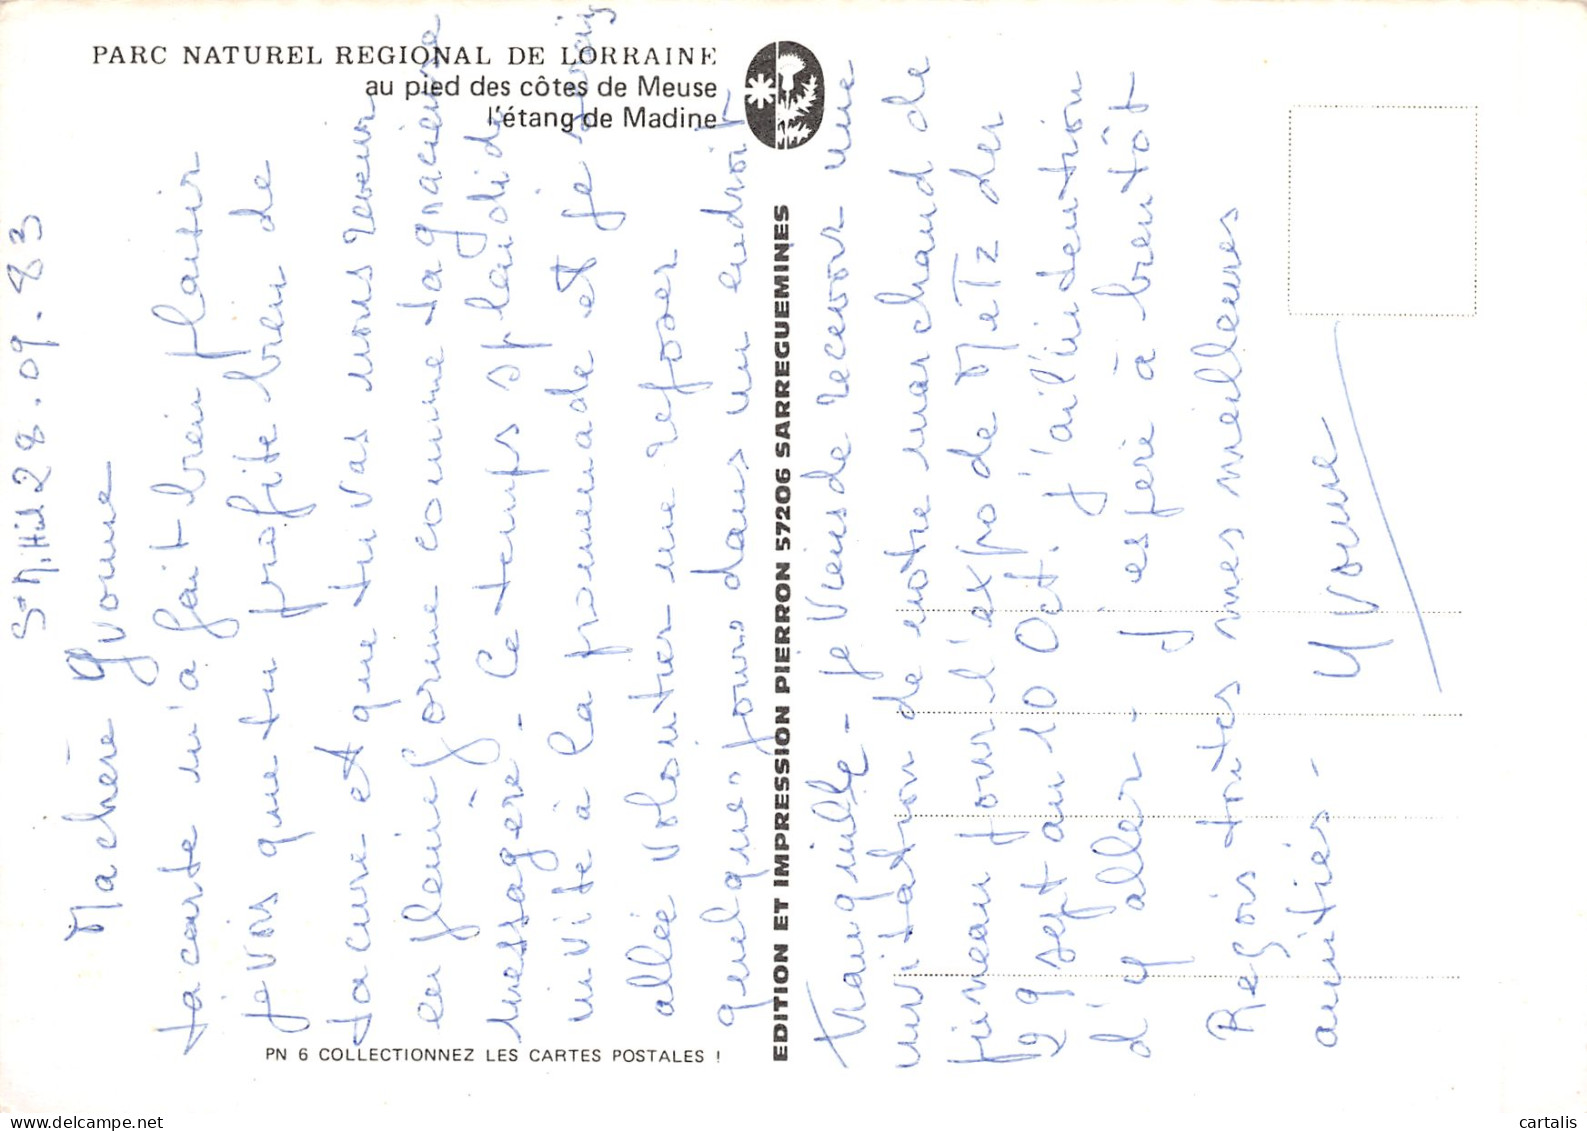 PARC NATUREL REGIONAL DE LORRAINE
au pied des côtes de Meuse
l'étang de Madine
St Mihiel 28.09.83
Ma chère Yvonne
ta carte m'a fait bien plaisir
je vois que tu profite bien de
ta cure et que tu vas nous revenir
en pleine forme comme ta gracieuse
messagère - Ce temps splendide
invite à la promenade et je serais
allée volontier me reposer
quelques jours dans un endroit
tranquille - je viens de recevoir une
invitation de notre marchand de
pineau pour l'expo de Metz du
29 sept au 10 Oct. j'ai l'intention
d'y aller - J'espère à bientôt
Reçois toutes mes meilleures
amitiés -
Yvonne
EDITION ET IMPRESSION PIERRON 57206 SARREGUEMINES
PN 6 COLLECTIONNEZ LES CARTES POSTALES !
delcampe.net
cartalis